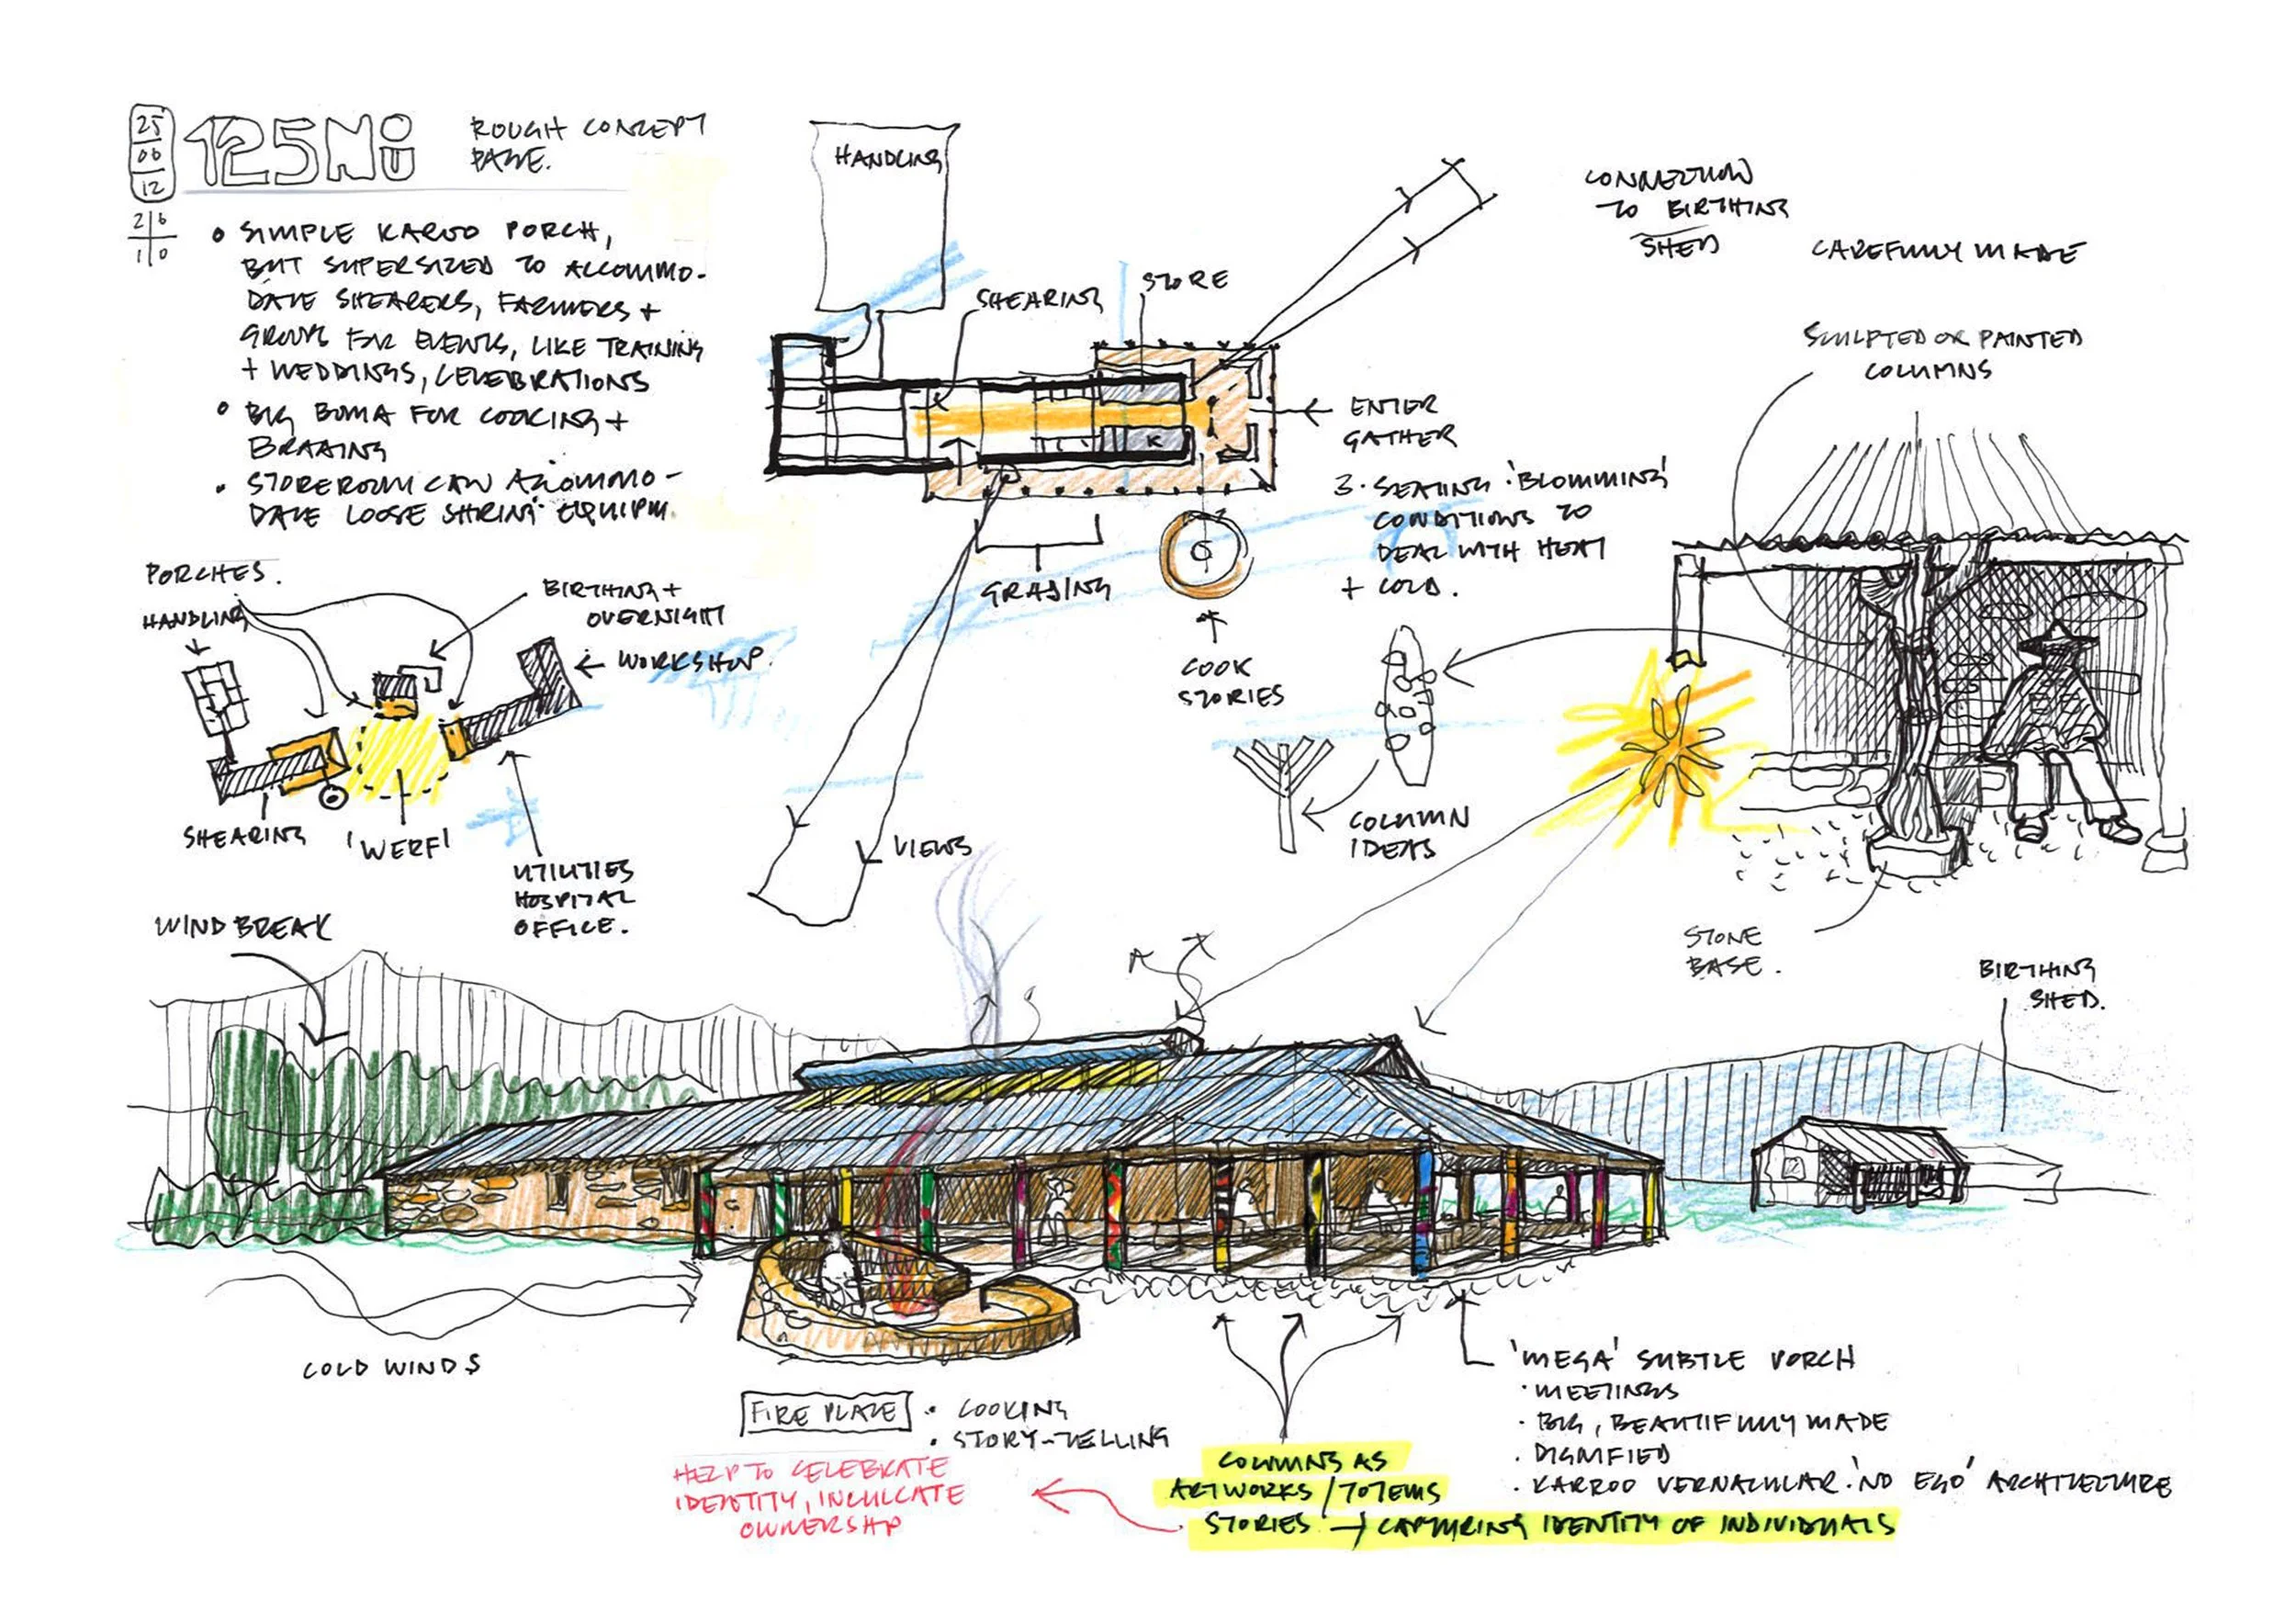 25
06
12
125NOU
ROUGH CONCEPT
PAGE.
26
10
• SIMPLE KAROO PORCH,
BUT SUPERSIZED TO ACCOMMO-
DATE SHEARERS, FARMERS +
GROUPS FOR EVENTS, LIKE TRAINING
+ WEDDINGS, CELEBRATIONS
• BIG BOMA FOR COOKING +
BRAAING
• STOREROOM CAN ACCOMMO-
DATE LOOSE EQUIPM.
HANDLING
SHEARING
STORE
K
CONNECTION
TO BIRTHING
SHED
ENTER
GATHER
3. SEATING. 'BLOMMING'
CONDITIONS TO
DEAL WITH HEAT
+ COLD.
GRADING
COOK
STORIES
VIEWS
CAREFULLY MADE
SCULPTED OR PAINTED
COLUMNS
COLUMN
IDEAS
STONE
BASE.
PORCHES.
HANDLING
BIRTHING +
OVERNIGHT
WORKSHOP.
SHEARING
'WERF'
UTILITIES
HOSPITAL
OFFICE.
WIND BREAK
BIRTHING
SHED.
COLD WINDS
FIRE PLACE
• COOKING
• STORY-TELLING
HELP TO CELEBRATE
IDENTITY, INCULCATE
OWNERSHIP
COLUMNS AS
ARTWORKS / TOTEMS
STORIES → CAPTURING IDENTITY OF INDIVIDUALS
'MEGA' SUBTLE PORCH
• MEETINGS
• BIG, BEAUTIFULLY MADE
• DIGNIFIED
• KARROO VERNACULAR. 'NO EGO' ARCHITECTURE